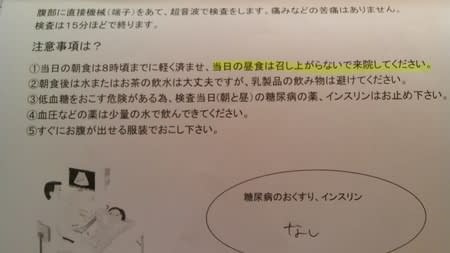 腹部に直接機械(端子)をあて、超音波で検査をします。痛みなどの苦痛はありません。
検査は15分ほどで終ります。
注意事項は?
①当日の朝食は8時頃までに軽く済ませ、当日の昼食は召し上がらないで来院してください。
②朝食後は水またはお茶の飲水は大丈夫ですが、乳製品の飲み物は避けてください。
③低血糖をおこす危険がある為、検査当日(朝と昼)の糖尿病の薬、インスリンはお止め下さい。
④血圧などの薬は少量の水で飲んできてください。
⑤すぐにお腹が出せる服装でおこし下さい。
糖尿病のおくすり、インスリン
なし